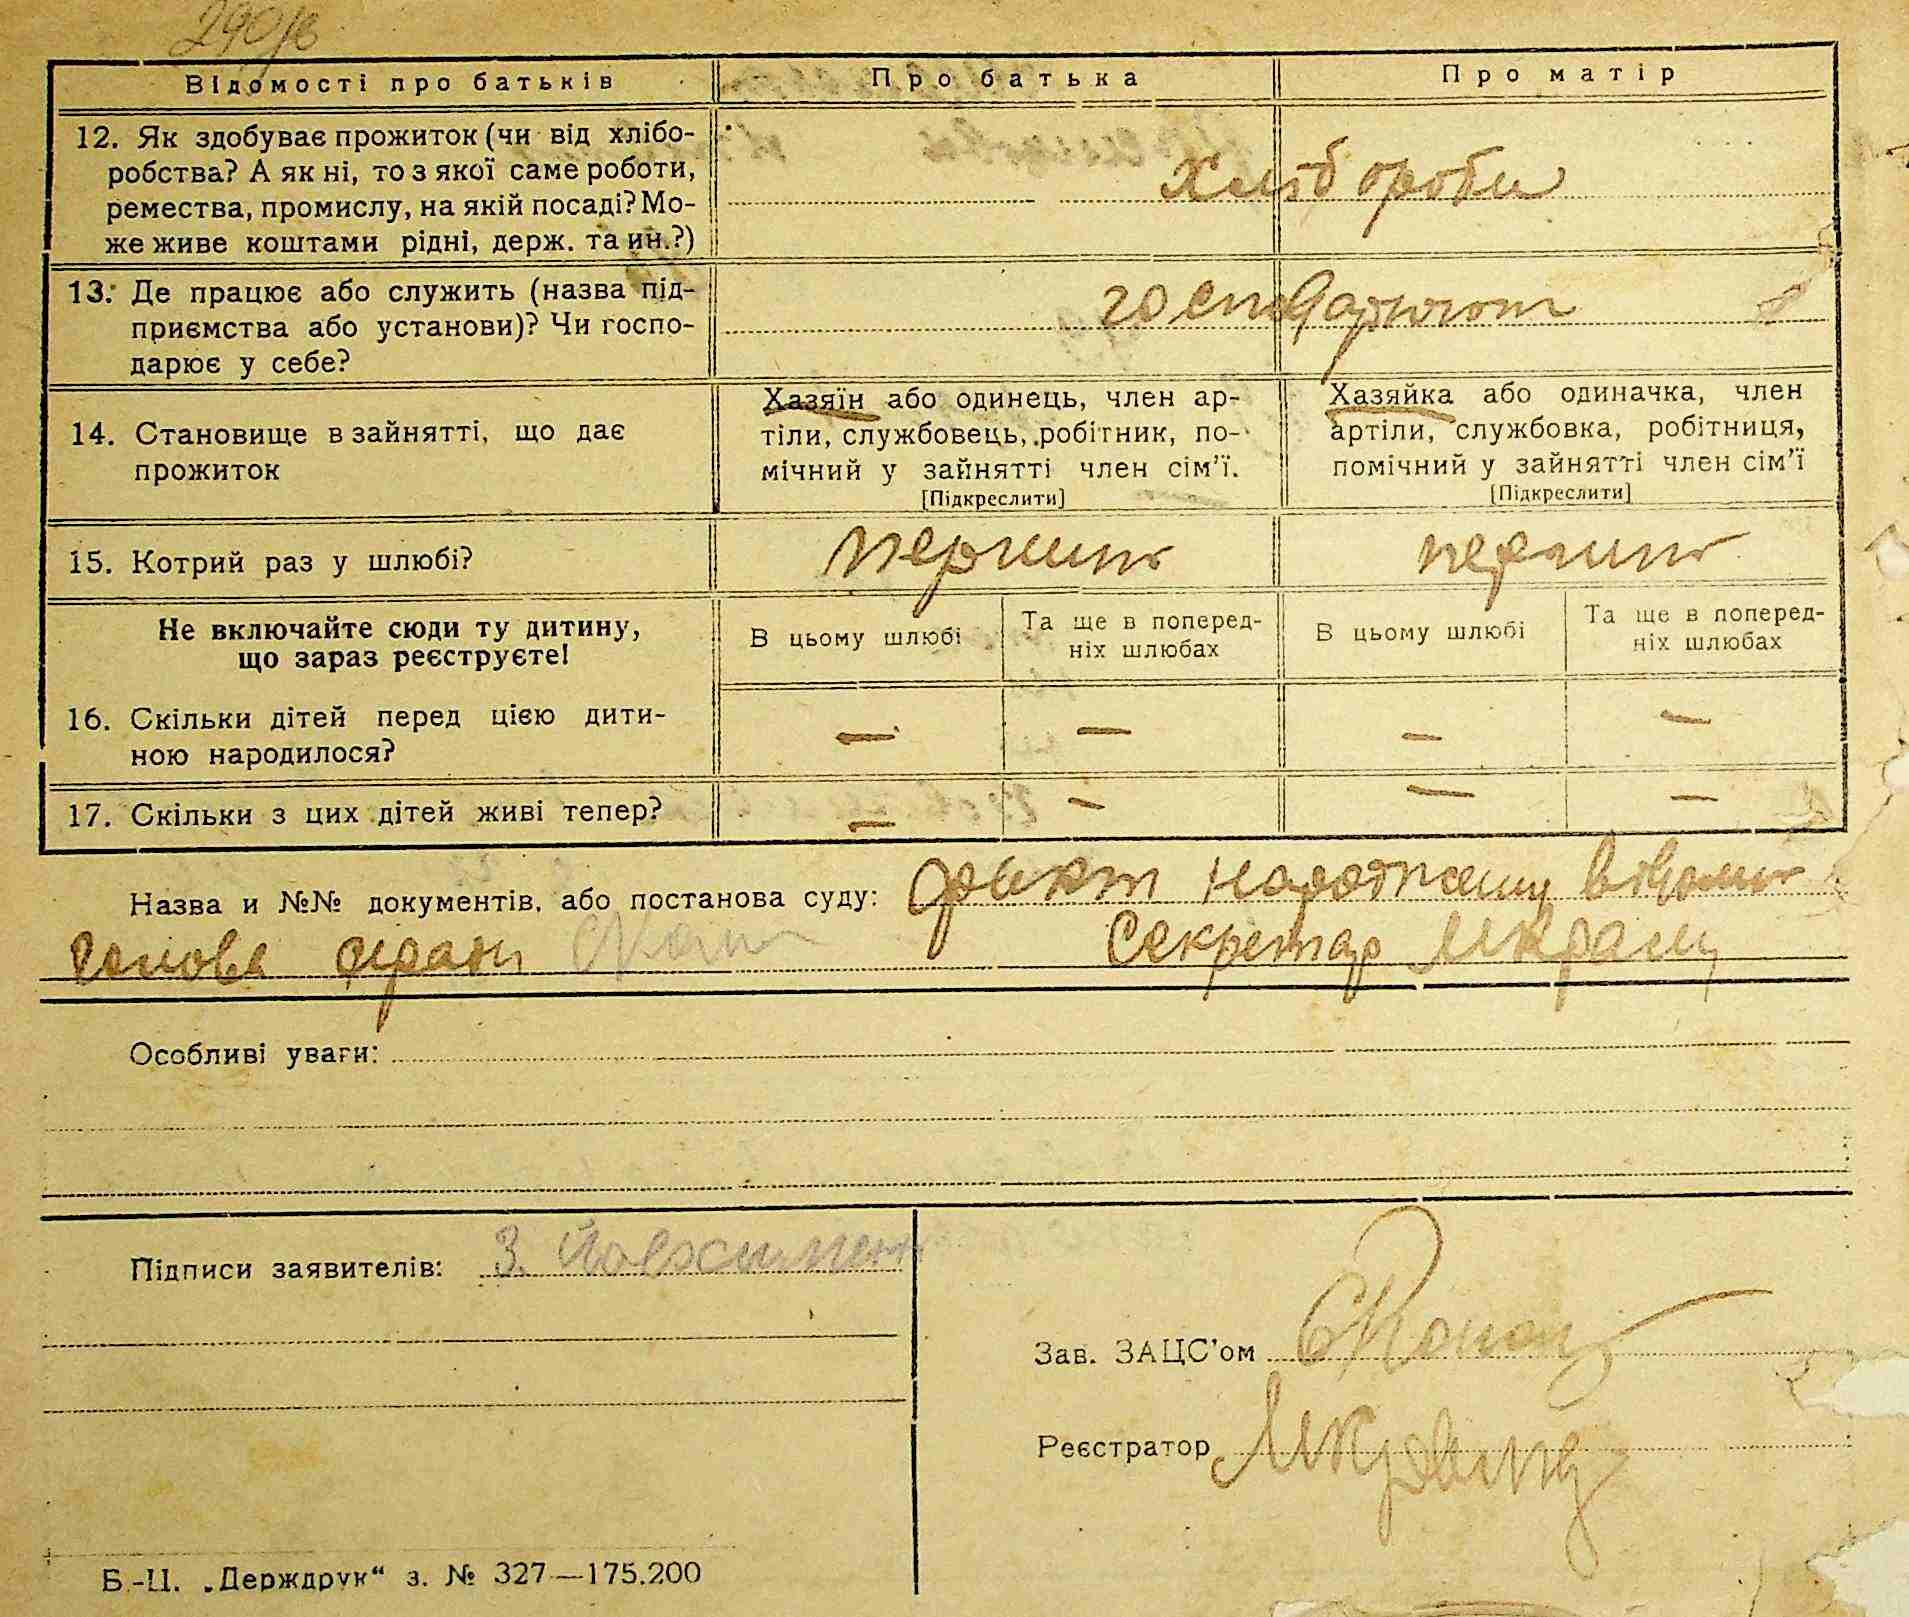 290/в
Відомості про батьків
Про батька
Про матір
12. Як здобуває прожиток (чи від хлібо-
робства? А як ні, то з якої саме роботи,
ремества, промислу, на якій посаді? Мо-
же живе коштами рідні, держ. та ин.?)
хлібороби
13. Де працює або служить (назва під-
приємства або установи)? Чи госпо-
дарює у себе?
господарюют
14. Становище в зайнятті, що дає
прожиток
Хазяїн або одинець, член ар-
тіли, службовець, робітник, по-
мічний у зайнятті член сім'ї.
[Підкреслити]
Хазяйка або одиначка, член
артіли, службовка, робітниця,
помічний у зайнятті член сім'ї
[Підкреслити]
15. Котрий раз у шлюбі?
перший
перший
Не включайте сюди ту дитину,
що зараз реєструєте!
В цьому шлюбі
Та ще в поперед-
ніх шлюбах
В цьому шлюбі
Та ще в поперед-
ніх шлюбах
16. Скільки дітей перед цією дити-
ною народилося?
— — — —
17. Скільки з цих дітей живі тепер?
— — — —
Назва и №№ документів, або постанова суду: факт народження відомий
Голова с/ради Секретар
Особливі уваги:
Підписи заявителів: З.
Зав. ЗАЦС'ом
Реєстратор
Б.-Ц. „Держдрук“ з. № 327—175.200